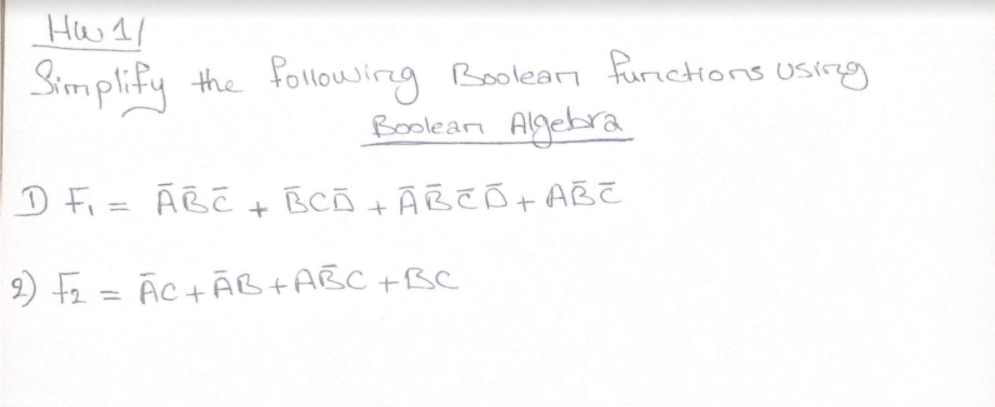 Hw 1/
Simplify the following Boolean functions using
Boolean Algebra
1) F₁ = A̅B̅C̅ + B̅CD̅ + A̅B̅C̅D̅ + AB̅C̅
2) F₂ = A̅C + A̅B + AB̅C + BC